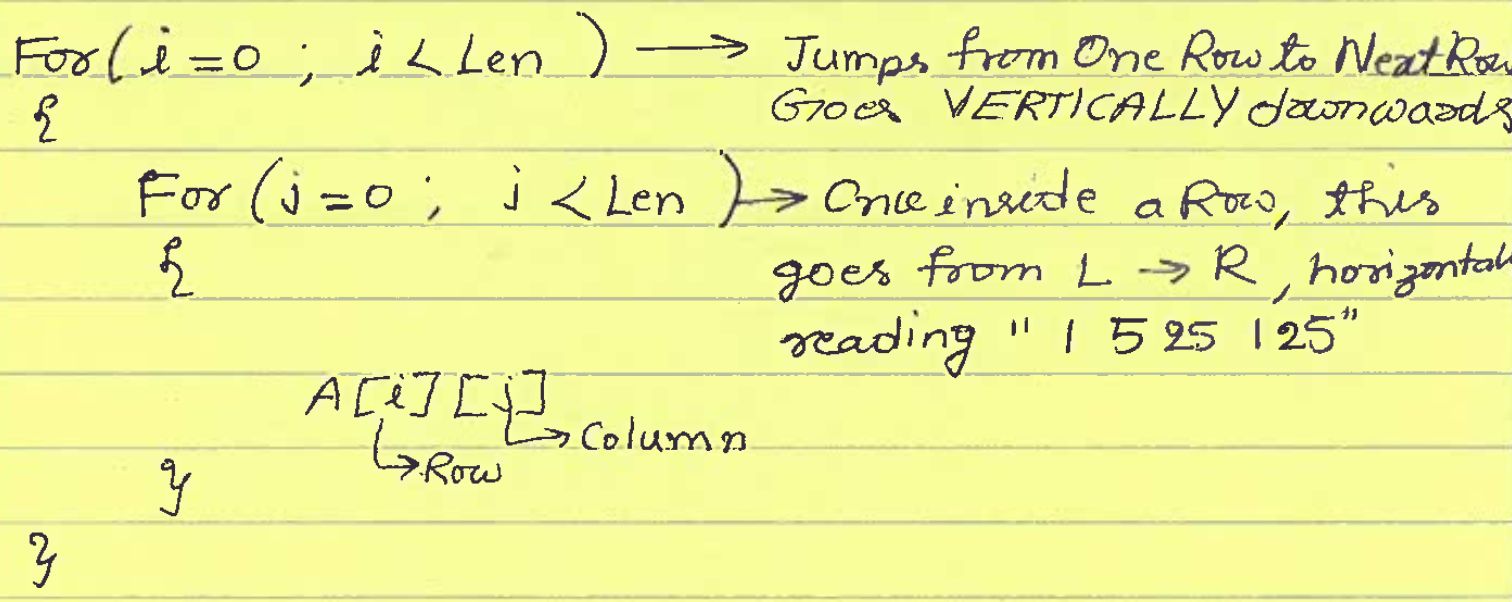 For ( i = 0 ; i < Len ) → Jumps from One Row to Next Row
{ Goes VERTICALLY downwards
For ( j = 0 ; j < Len ) → Once inside a Row, this
{ goes from L → R, horizontal
reading " 1 5 25 125"
A[i] [j]
→ Column
→ Row
}
}